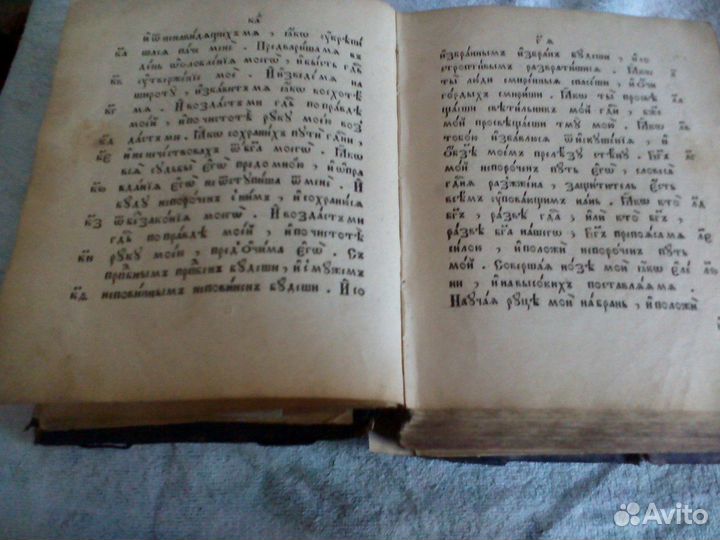 и҆ѿ ненавидѧщихъ мѧ , ꙗ҆́кѡ ᲂу҆крѣпи
ша́сѧ па́че менє̀ . Предвари́ша мѧ в
де́нь ѡ҆ѕлобле́нїѧ моегѡ̀ , и҆бы́сть гд҇ь
ᲂу҆твержє́нїє моѐ . И҆и҆зведе́ мѧ на
широтꙋ̀ , и҆зба́витъ мѧ ꙗ҆́кѡ восхотѣ̀
мѧ . И҆возда́стъ ми гд҇ь по пра́вдѣ
мое́й , и҆по чистотѣ̀ рꙋкꙋ̀ моє́ю воз
да́стъ ми . Ꙗ҆́кѡ сохрани́хъ пꙋти̑ гд҇ни ,
и҆не нече́ствовахъ ѿ бг҃а моегѡ̀ . Ꙗ҆́кѡ
всѧ̑ сꙋдьбы̀ є҆гѡ̀ предо мно́ю , и҆ѡ҆пра
вда́нїѧ є҆гѡ̀ не ѿстꙋпи́ша ѿ менє̀ . И҆
бꙋ́дꙋ непоро́ченъ с ни́мъ , и҆сохраню́сѧ
ѿ беззако́нїѧ моегѡ̀ . И҆возда́стъ ми
гд҇ь по пра́вдѣ мое́й , и҆по чистотѣ̀
рꙋкꙋ̀ моє́ю , пред ѻ҆чи́ма є҆гѡ̀ . Съ
прпⷣбнымъ прпⷣбенъ бꙋ́деши , и҆с мꙋ́жемъ
непови́ннымъ непови́ненъ бꙋ́деши . И҆со
и҆збра́ннымъ и҆збра́нъ бꙋ́деши , и҆со
стропти́вымъ разврати́шисѧ . Ꙗ҆́кѡ
ты̀ лю́ди смирє́нныѧ спасе́ши , и҆ѻ҆́чи
го́рдыхъ смири́ши . Ꙗ҆́кѡ ты̀ просвѣ
ща́еши свѣти́льникъ мо́й гд҇и , бж҃е
мо́й просвѣща́еши тмꙋ̀ мою̀ . Ꙗ҆́кѡ
тобо́ю и҆зба́влюсѧ ѿ и҆скꙋше́нїѧ , и҆
ѡ҆ бз҃ѣ мое́мъ прелѣ́зꙋ стѣ́нꙋ . Бг҃ъ
мо́й непоро́ченъ пꙋ́ть є҆гѡ̀ , словеса̀
гд҇нѧ разжжє́на , защи́титель є҆́сть
всѣ̑мъ ᲂу҆пова́ющимъ на́нь . Ꙗ҆́кѡ кто̀
бг҃ъ , ра́звѣ гд҇а , и҆лѝ кто̀ бг҃ъ ,
ра́звѣ бг҃а на́шегѡ . Бг҃ъ препоѧ́саѧ мѧ
си́лою , и҆положѝ непоро́ченъ пꙋ́ть
мо́й . Соверша́ѧ но́зѣ моѝ ꙗ҆́кѡ є҆ле́
ни , и҆на высо́кихъ поставлѧ́ѧ мѧ .
Наꙋча́ѧ рꙋ́цѣ моѝ на бра́нь , и҆положѝ
Avito